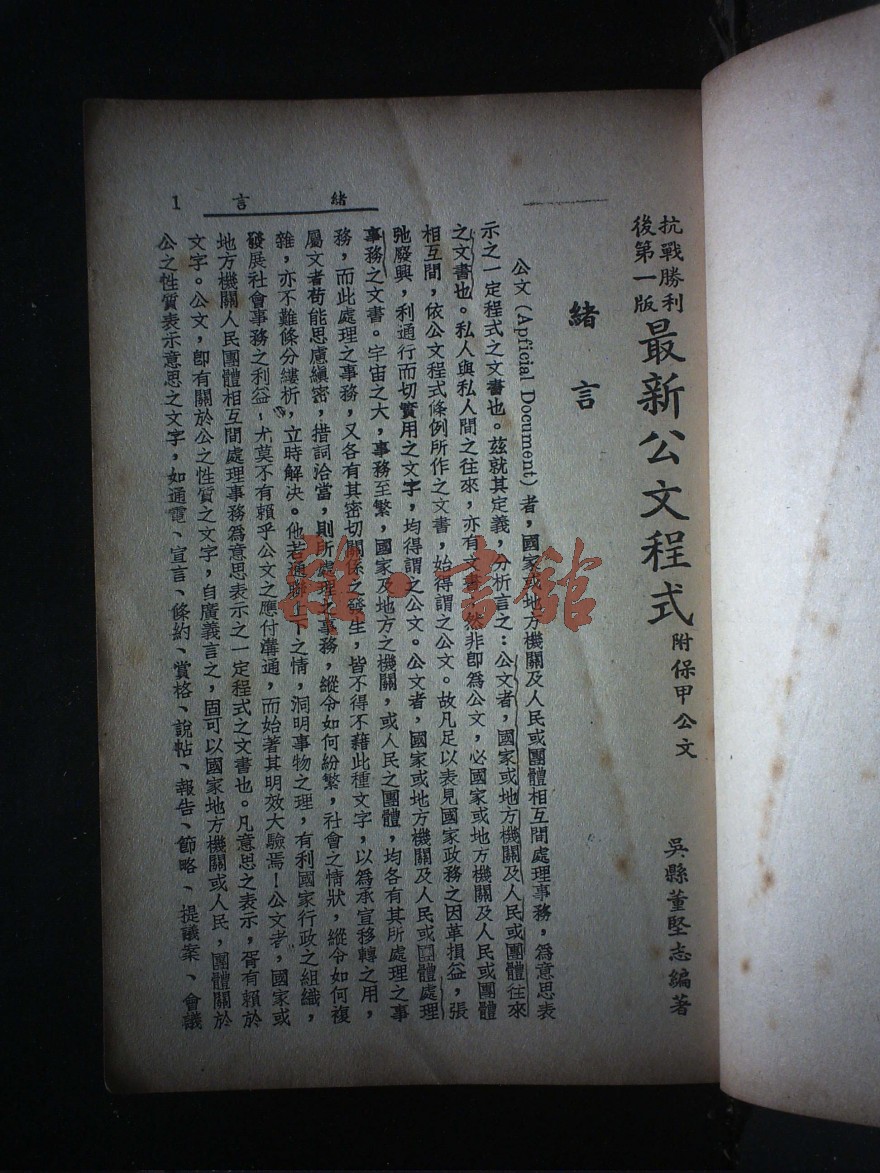 抗戰勝利
後第一版
最新公文程式 附保甲公文
吳縣董堅志編著
緒言
公文(Apficial Document)者,國家或地方機關及人民或團體相互間處理事務,為意思表
示之一定程式之文書也。茲就其定義,分析言之:公文者,國家或地方機關及人民或團體往來
之文書也。私人與私人間之往來,亦有文書,然非卽為公文,必國家或地方機關及人民或團體
相互間,依公文程式條例所作之文書,始得謂之公文。故凡足以表見國家政務之因革損益,張
弛廢興,利通行而切實用之文字,均得謂之公文。公文者,國家或地方機關及人民或團體處理
事務之文書。宇宙之大,事務至繁,國家及地方之機關,或人民之團體,均各有其所處理之事
務,而此處理之事務,又各有其密切關係之發生,皆不得不藉此種文字,以為承宣移轉之用,
屬文者苟能思慮縝密,措詞洽當,則所處理之事務,縱令如何紛繁,社會之情狀,縱令如何複
雜,亦不難條分縷析,立時解決。他若通聯上下之情,洞明事物之理,有利國家行政之組織,
發展社會事務之利益,尤莫不有賴乎公文之應付溝通,而始著其明效大驗焉!公文者,國家或
地方機關人民團體相互間處理事務為意思表示之一定程式之文書也。凡意思之表示,胥有賴於
文字。公文,卽有關於公之性質之文字,自廣義言之,固可以國家地方機關或人民,團體關於
公之性質表示意思之文字,如通電、宣言、條約、賞格、說帖、報告、節略、提議案、會議
緒言
1
雜·書館